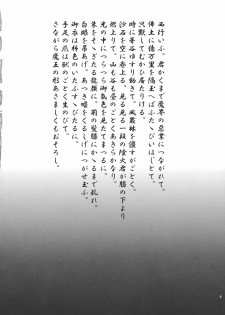 西行いふ。君かくまで魔界の悪業につながれて、
佛土に億万里を隔玉へばふたゝびいはじとて、
只黙してむかひ居たりける。
時に峯谷ゆすり動きて、風叢林を僵すがごとく、
沙石を空に巻上る。見る見る一段の陰火君が膝の下より
燃上りて、山も谷も昼のごとくあきらかなり。
光の中につらつら御氣色を見たてまつるに、
朱をそゝぎたる龍顔に、荊の髪膝にかゝるまで乱れ、
白眼を吊あげ、あつき嘘をくるしげにつがせ玉ふ。
御衣は柿色のいたうすゝびたるに、
手足の爪は獣のごとく生のびて、
さながら魔王の形あさましくもおそろし。